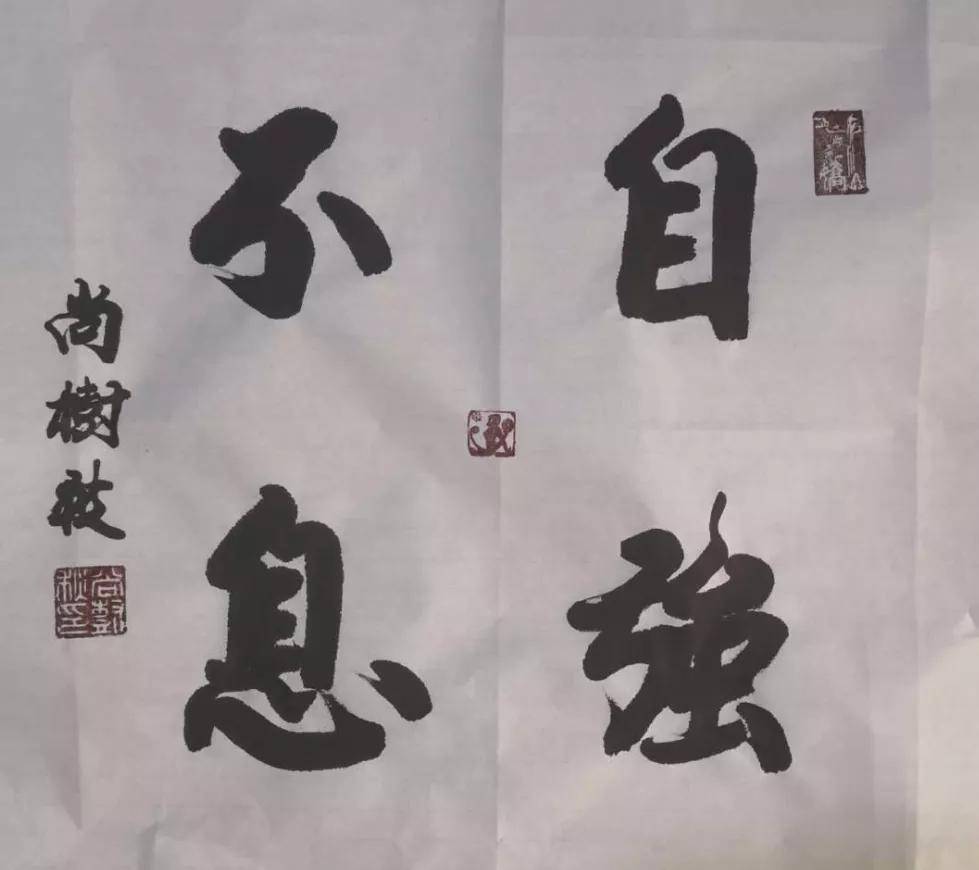 自強
不息
尚樹秋